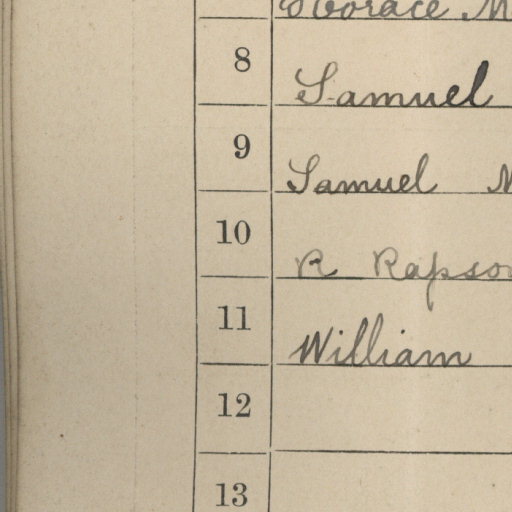 Horace M
8 Samuel
9 Samuel
10 R Rapson
11 William
12
13